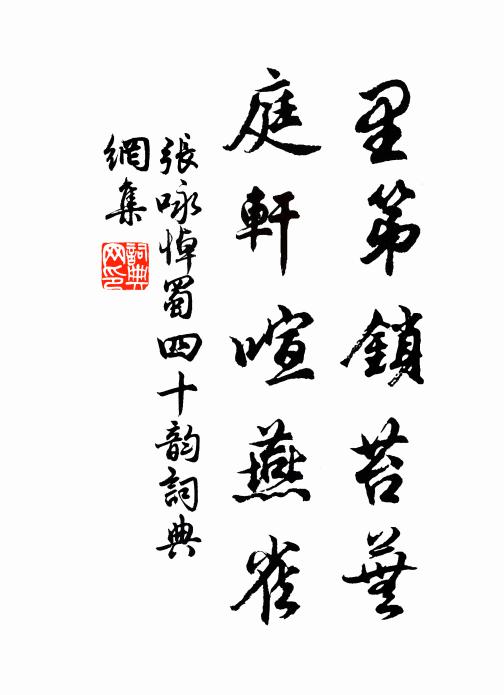 里第鎖苔蕪
庭軒喧燕雀
張咏悼蜀四十韵詞典
網集
詞典
网印